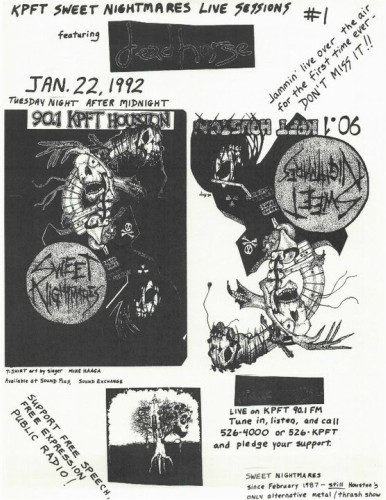 KPFT SWEET NIGHTMARES LIVE SESSIONS #1
featuring
dead horse
Jammin' live over the air
for the first time ever-
DON'T MISS IT!!
JAN. 22, 1992
TUESDAY NIGHT AFTER MIDNIGHT
90.1 KPFT HOUSTON
90.1 KPFT HOUSTON
SWEET
NIGHTMARES
SWEET
NIGHTMARES
T-SHIRT art by singer MIKE HAAGA
Available at Sound Plus, Sound Exchange
SUPPORT FREE SPEECH,
FREE EXPRESSION
PUBLIC RADIO!
LIVE on KPFT 90.1 FM
Tune in, listen, and call
526-4000 or 526-KPFT
and pledge your support.
SWEET NIGHTMARES
since February 1987 - still Houston's
ONLY alternative metal/thrash show